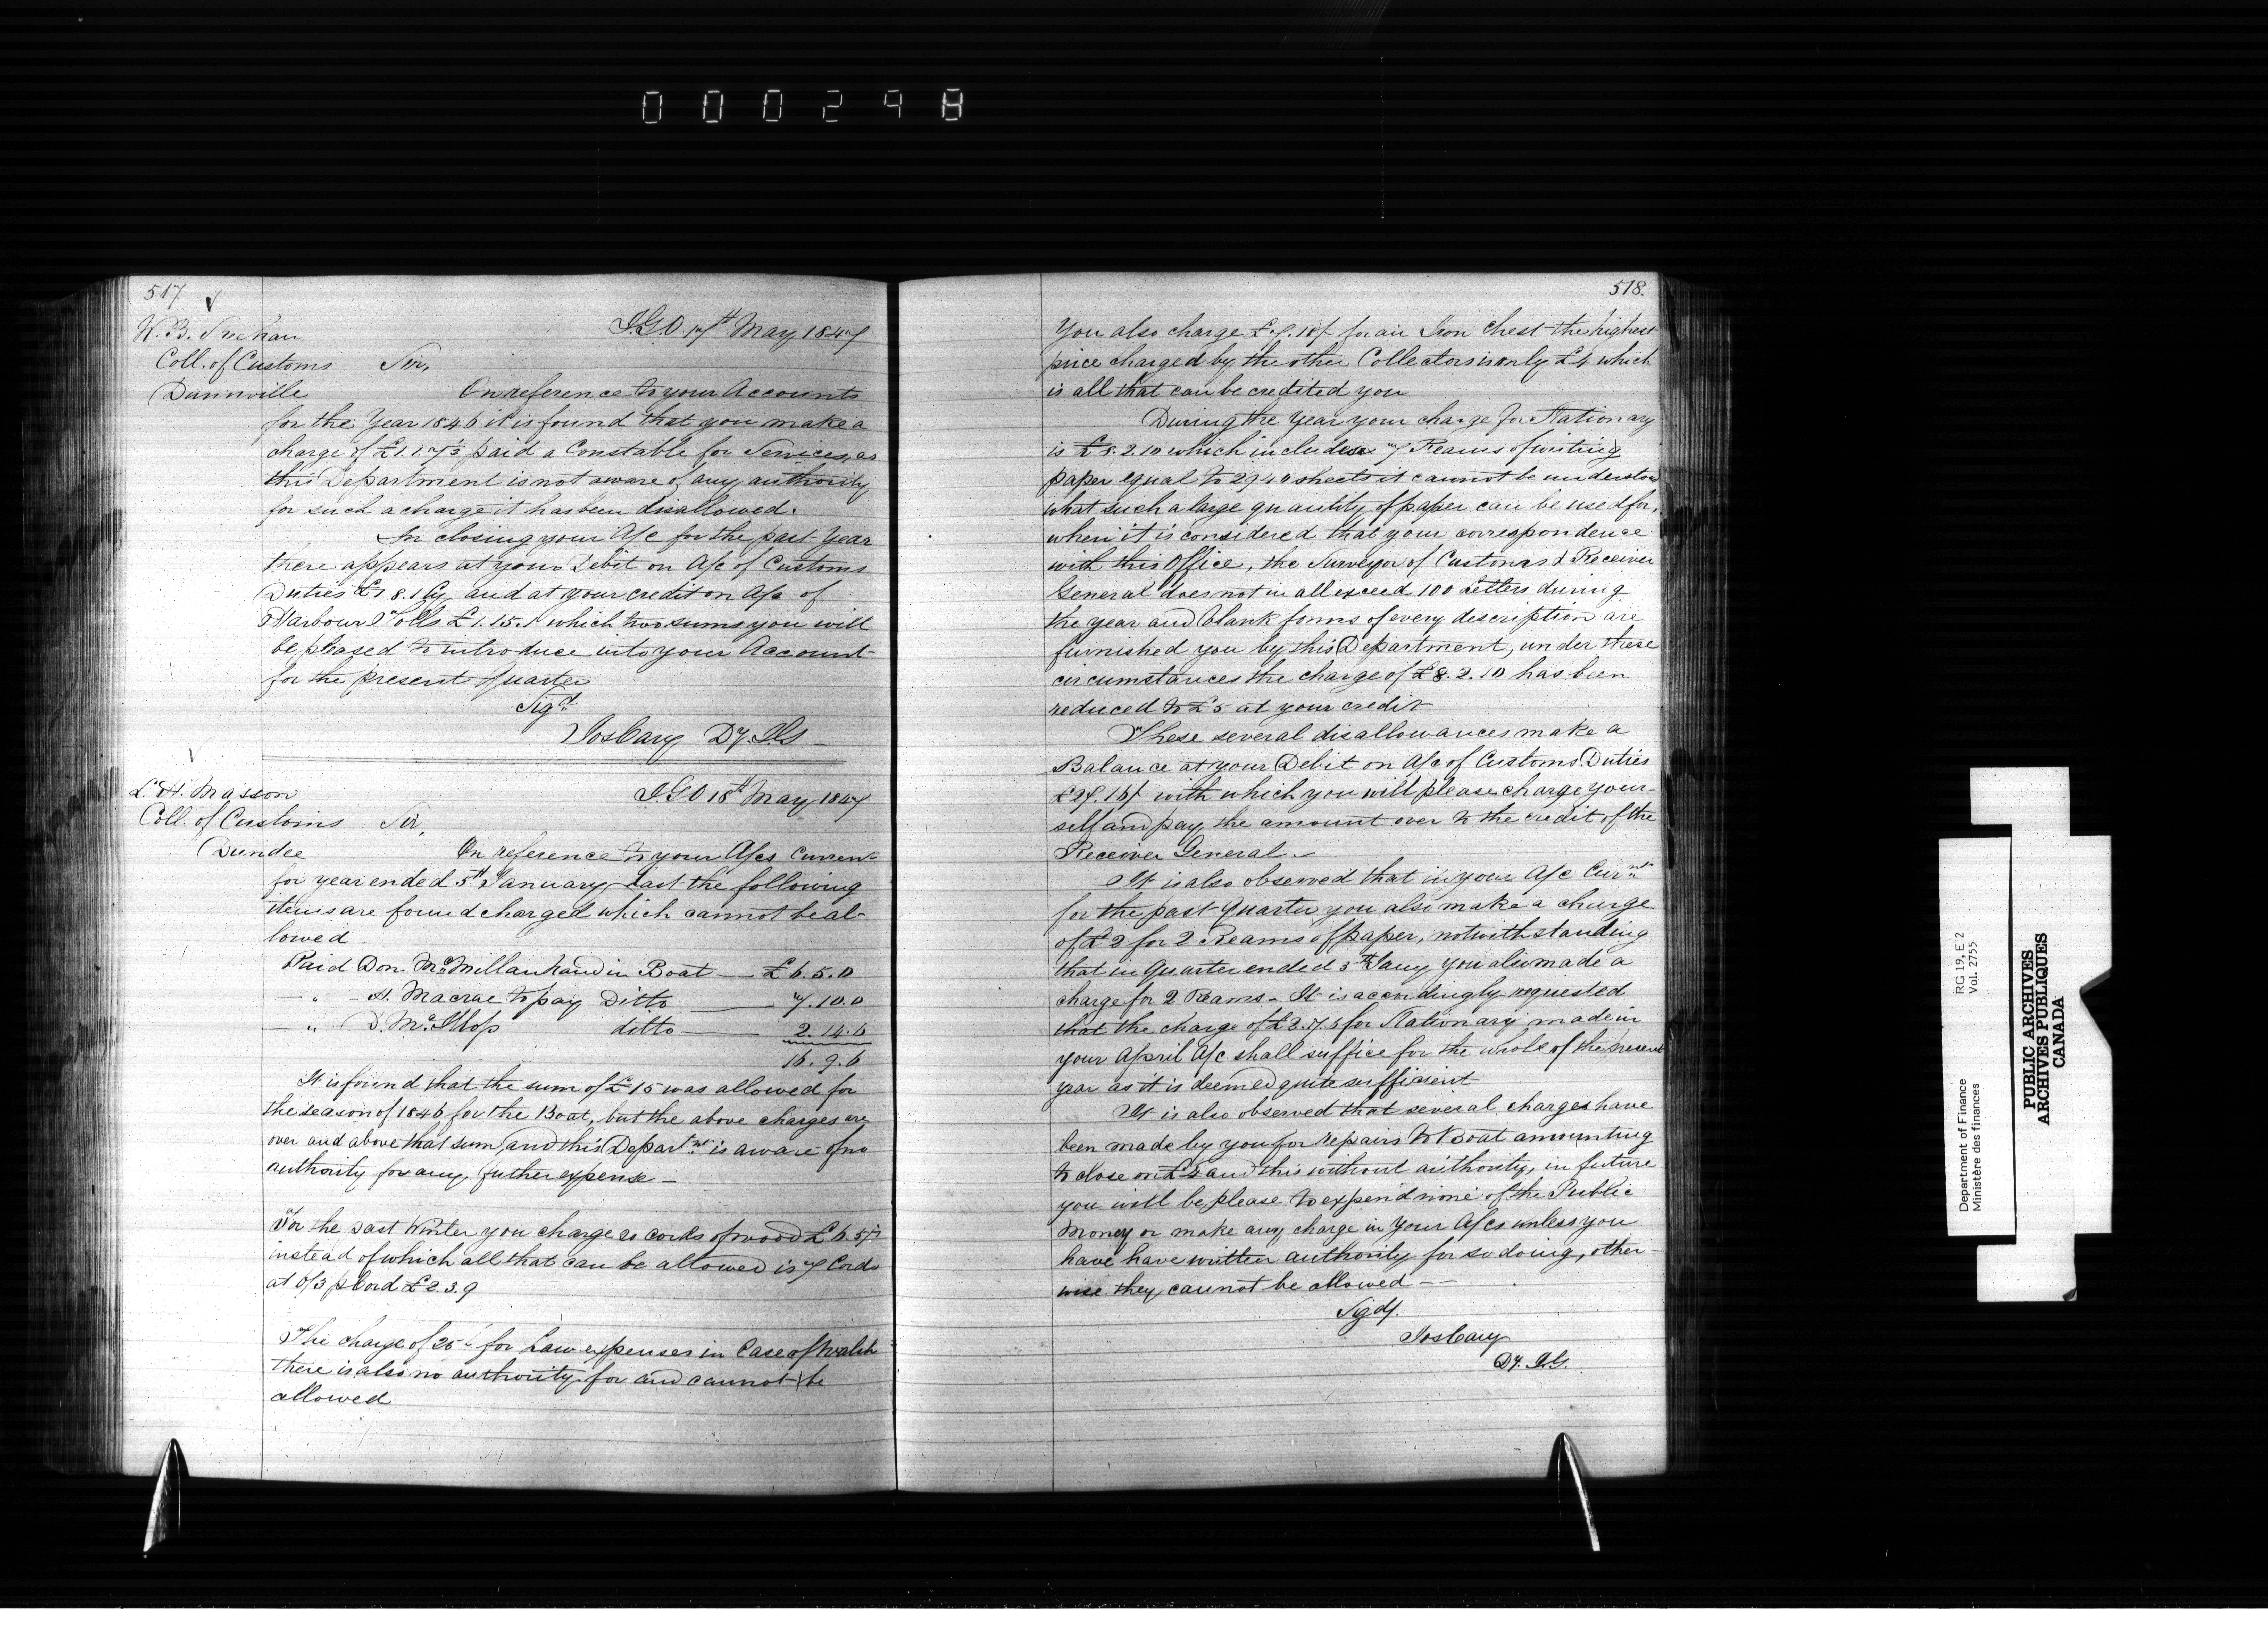 000298
517
W. B. Sheehan
Coll. of Customs
Dunnville
I.G.O 17th May 1847
Sir,
On reference to your Accounts
for the Year 1846 it is found that you make a
charge of £1.1.7½ paid a Constable for Services, as
this Department is not aware of any authority
for such a charge it has been disallowed.
In closing your A/c for the past Year
there appears at your Debit on A/c of Customs
Duties £1.8.1 Cy and at your credit on A/c of
Harbour Tolls £1.15.1 which two sums you will
be pleased to introduce into your Account
for the present Quarter
Sigd
Jos Cary Dy. I.G
L. H. Masson
Coll. of Customs
Dundee
I.G.O 18th May 1847
Sir,
On reference to your A/cs Current
for year ended 5th January last the following
items are found charged which cannot be al-
lowed
Paid Don. McMillan hand in Boat — £6.5.0
— " — H. Macrae to pay Ditto — 7.10.0
— " D. McIllop ditto — 2.14.6
16.9.6
It is found that the sum of £15 was allowed for
the season of 1846 for the Boat, but the above charges are
over and above that sum, and this Departmt is aware of no
authority for any futher expense —
For the past Winter you charge 20 cords of wood £6.5/
instead of which all that can be allowed is 7 Cords
at 6/3 p Cord £2.3.9
The charge of 25/- for Law expenses in Case of Walsh
there is also no authority for and cannot be
allowed
518.
You also charge £7.10/ for an Iron Chest the highest
price charged by the other Collectors is only £4 which
is all that can be credited you
During the Year your charge for Stationary
is £8.2.10 which includes 7 Reams of writing
paper equal to 2940 sheets it cannot be understood
what such a large quantity of paper can be used for,
when it is considered that your correspondence
with this Office, the Surveyor of Customs & Receiver
General does not in all exceed 100 Letters during
the year and blank forms of every description are
furnished you by this Department, under these
circumstances the charge of £8.2.10 has been
reduced to £5 at your credit
These several disallowances make a
Balance at your Debit on A/c of Customs Duties
£29.16/ with which you will please charge your-
self and pay the amount over to the credit of the
Receiver General —
It is also observed that in your A/c Curnt
for the past Quarter you also make a charge
of £2 for 2 Reams of paper, notwithstanding
that in Quarter ended 5th Jany you also made a
charge for 2 Reams — It is accordingly requested
that the charge of £2.7.5 for Stationary made in
your April A/c shall suffice for the whole of the present
year as it is deemed quite sufficient
It is also observed that several charges have
been made by you for repairs to Boat amounting
to close on £4 and this without authority, in future
you will be please to expend none of the Public
Money or make any charge in your A/cs unless you
have have written authority for so doing, other-
wise they cannot be allowed —
Sigd/.
Jos Cary
Dy. I.G.
Department of Finance
Ministère des finances
RG 19, E 2
Vol. 2755
PUBLIC ARCHIVES
ARCHIVES PUBLIQUES
CANADA